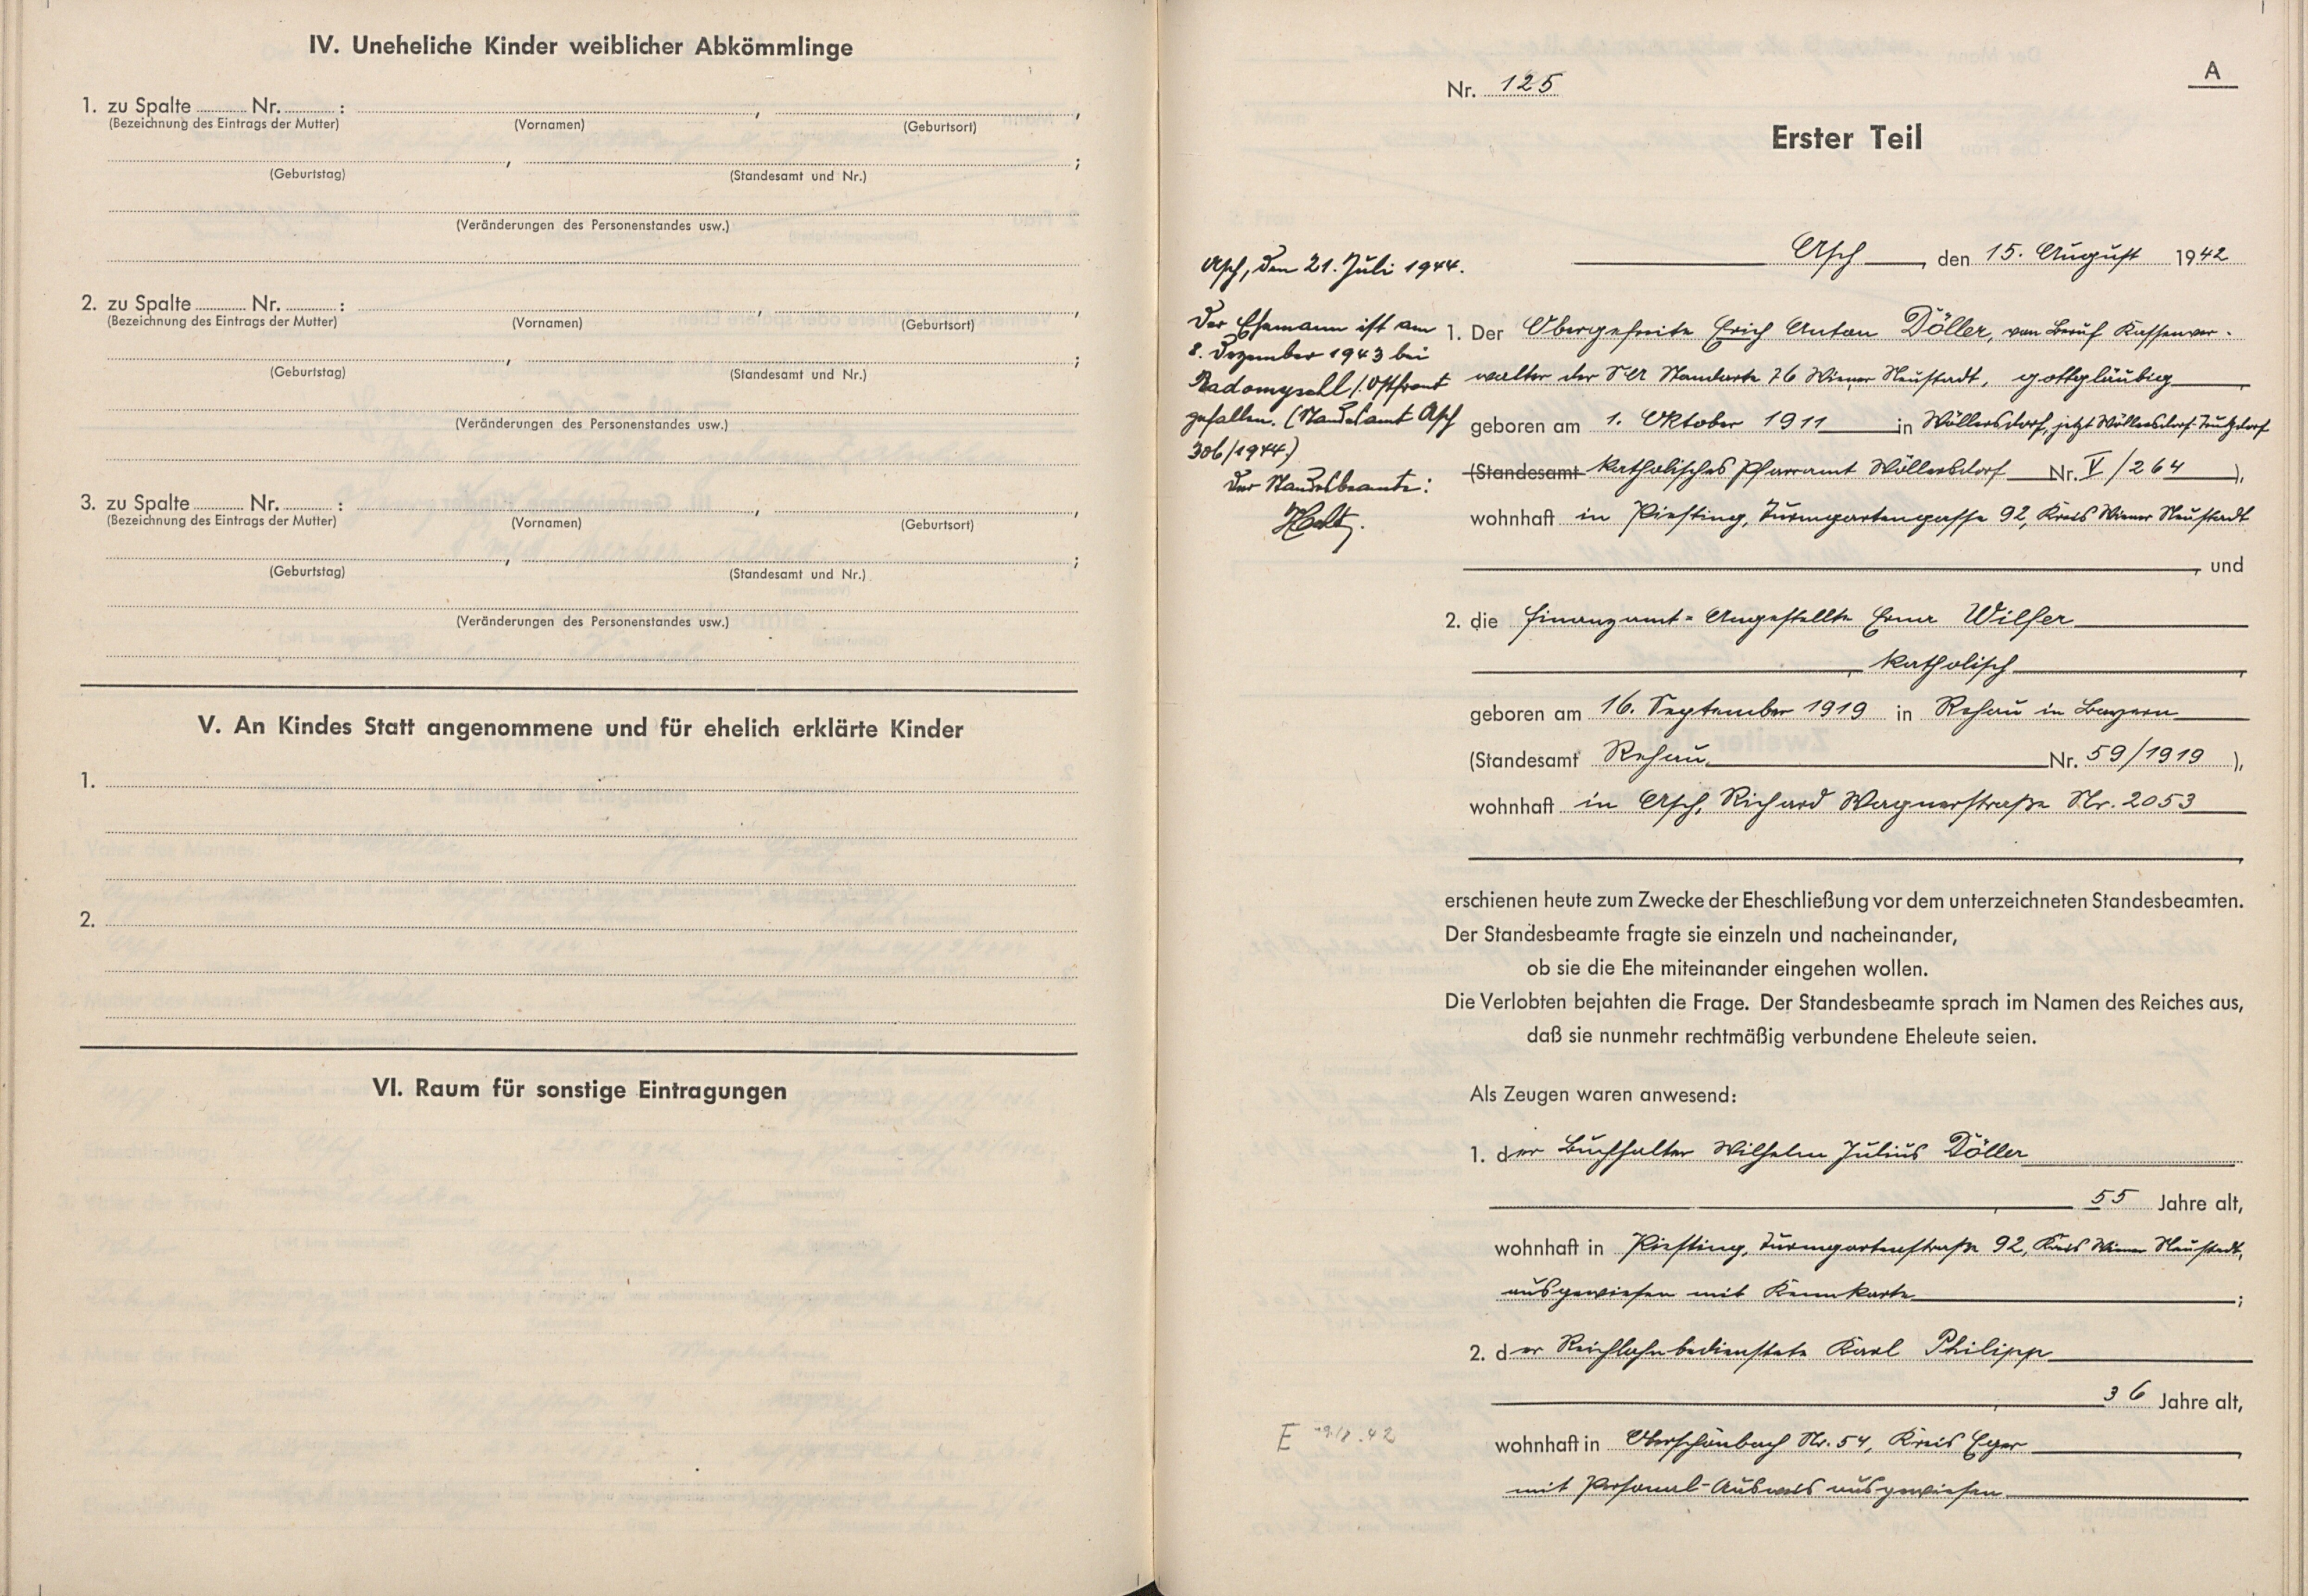 IV. Uneheliche Kinder weiblicher Abkömmlinge
1. zu Spalte Nr. : , ,
(Bezeichnung des Eintrags der Mutter) (Vornamen) (Geburtsort)
, ;
(Geburtstag) (Standesamt und Nr.)
(Veränderungen des Personenstandes usw.)
2. zu Spalte Nr. : , ,
(Bezeichnung des Eintrags der Mutter) (Vornamen) (Geburtsort)
, ;
(Geburtstag) (Standesamt und Nr.)
(Veränderungen des Personenstandes usw.)
3. zu Spalte Nr. : , ,
(Bezeichnung des Eintrags der Mutter) (Vornamen) (Geburtsort)
, ;
(Geburtstag) (Standesamt und Nr.)
(Veränderungen des Personenstandes usw.)
V. An Kindes Statt angenommene und für ehelich erklärte Kinder
1.
2.
VI. Raum für sonstige Eintragungen
A
Nr. 125
Erster Teil
Asch, den 15. August 1942
Asch, den 21. Juli 1944.
Der Ehemann ist am
8. Dezember 1943 bei
Radomyschl/Ostfront
gefallen. (Standesamt Asch
306/1944)
Der Standesbeamte:
1. Der Obergefreite Erich Anton Döller, von Beruf Kassenver-
walter der SA Standarte 76 Wiener Neustadt, gottgläubig,
geboren am 1. Oktober 1911 in Wöllersdorf, jetzt Wöllersdorf-Trutzdorf
(Standesamt katholisches Pfarramt Wöllersdorf Nr. V/264),
wohnhaft in Piesting, Turmgartengasse 92, Kreis Wiener Neustadt
, und
2. die Finanzamt-Angestellte Erna Wilfer
, katholisch,
geboren am 16. September 1919 in Rehau in Bayern
(Standesamt Rehau Nr. 59/1919),
wohnhaft in Asch, Richard Wagnerstraße Nr. 2053
,
erschienen heute zum Zwecke der Eheschließung vor dem unterzeichneten Standesbeamten.
Der Standesbeamte fragte sie einzeln und nacheinander,
ob sie die Ehe miteinander eingehen wollen.
Die Verlobten bejahten die Frage. Der Standesbeamte sprach im Namen des Reiches aus,
daß sie nunmehr rechtmäßig verbundene Eheleute seien.
Als Zeugen waren anwesend:
1. der Buchhalter Wilhelm Julius Döller
, 55 Jahre alt,
wohnhaft in Piesting, Turmgartenstraße 92, Kreis Wiener Neustadt,
ausgewiesen mit Kennkarte;
2. der Reichsbahnbedienstete Karl Philipp
, 36 Jahre alt,
wohnhaft in Oberschönbach Nr. 54, Kreis Eger,
mit Personal-Ausweis ausgewiesen
E